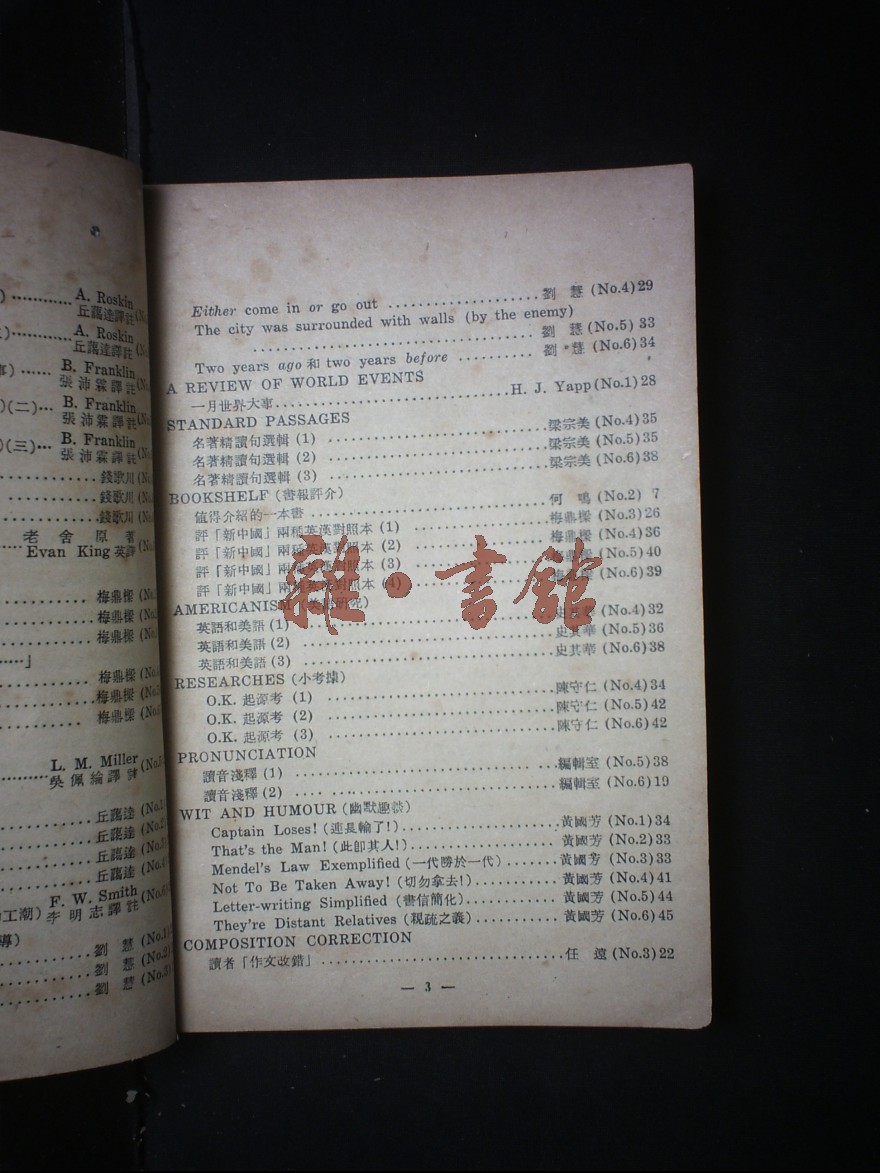 A. Roskin
丘藹達譯註
A. Roskin
丘藹達譯註
B. Franklin
張沛霖譯註
(二) B. Franklin
張沛霖譯註
(三) B. Franklin
張沛霖譯註
錢歌川
錢歌川
錢歌川
老舍原著
Evan King 英譯
梅鼎樑
梅鼎樑
梅鼎樑
梅鼎樑
梅鼎樑
梅鼎樑
L. M. Miller
吳佩綸譯
丘藹達
丘藹達
丘藹達
丘藹達
F. W. Smith
工潮) 李明志譯註
導)
劉 慧
劉 慧
劉 慧
Either come in or go out .................... 劉 慧 (No.4) 29
The city was surrounded with walls (by the enemy)
.................................... 劉 慧 (No.5) 33
Two years ago 和 two years before .......... 劉 慧 (No.6) 34
A REVIEW OF WORLD EVENTS
一月世界大事.............................. H. J. Yapp (No.1) 28
STANDARD PASSAGES
名著精讀句選輯 (1) ............................ 梁宗美 (No.4) 35
名著精讀句選輯 (2) ............................ 梁宗美 (No.5) 35
名著精讀句選輯 (3) ............................ 梁宗美 (No.6) 38
BOOKSHELF (書報評介)
值得介紹的一本書 .............................. 何 鳴 (No.2) 7
評「新中國」兩種英漢對照本 (1) .............. 梅鼎樑 (No.3) 26
評「新中國」兩種英漢對照本 (2) .............. 梅鼎樑 (No.4) 36
評「新中國」兩種英漢對照本 (3) .............. 梅鼎樑 (No.5) 40
評「新中國」兩種英漢對照本 (4) .............. 梅鼎樑 (No.6) 39
AMERICANISM
英語和美語 (1) ................................ 史其華 (No.4) 32
英語和美語 (2) ................................ 史其華 (No.5) 36
英語和美語 (3) ................................ 史其華 (No.6) 38
RESEARCHES (小考據)
O.K. 起源考 (1) ............................ 陳守仁 (No.4) 34
O.K. 起源考 (2) ............................ 陳守仁 (No.5) 42
O.K. 起源考 (3) ............................ 陳守仁 (No.6) 42
PRONUNCIATION
讀音淺釋 (1) .............................. 編輯室 (No.5) 38
讀音淺釋 (2) .............................. 編輯室 (No.6) 19
WIT AND HUMOUR (幽默趣談)
Captain Loses! (連長輸了!) .................. 黃國芳 (No.1) 34
That's the Man! (此卽其人!) .................. 黃國芳 (No.2) 33
Mendel's Law Exemplified (一代勝於一代) ....... 黃國芳 (No.3) 33
Not To Be Taken Away! (切勿拿去!) ............ 黃國芳 (No.4) 41
Letter-writing Simplified (書信簡化) ............ 黃國芳 (No.5) 44
They're Distant Relatives (親疏之義) ............ 黃國芳 (No.6) 45
COMPOSITION CORRECTION
讀者「作文改錯」................................ 任 遠 (No.3) 22
— 3 —
雜·書館